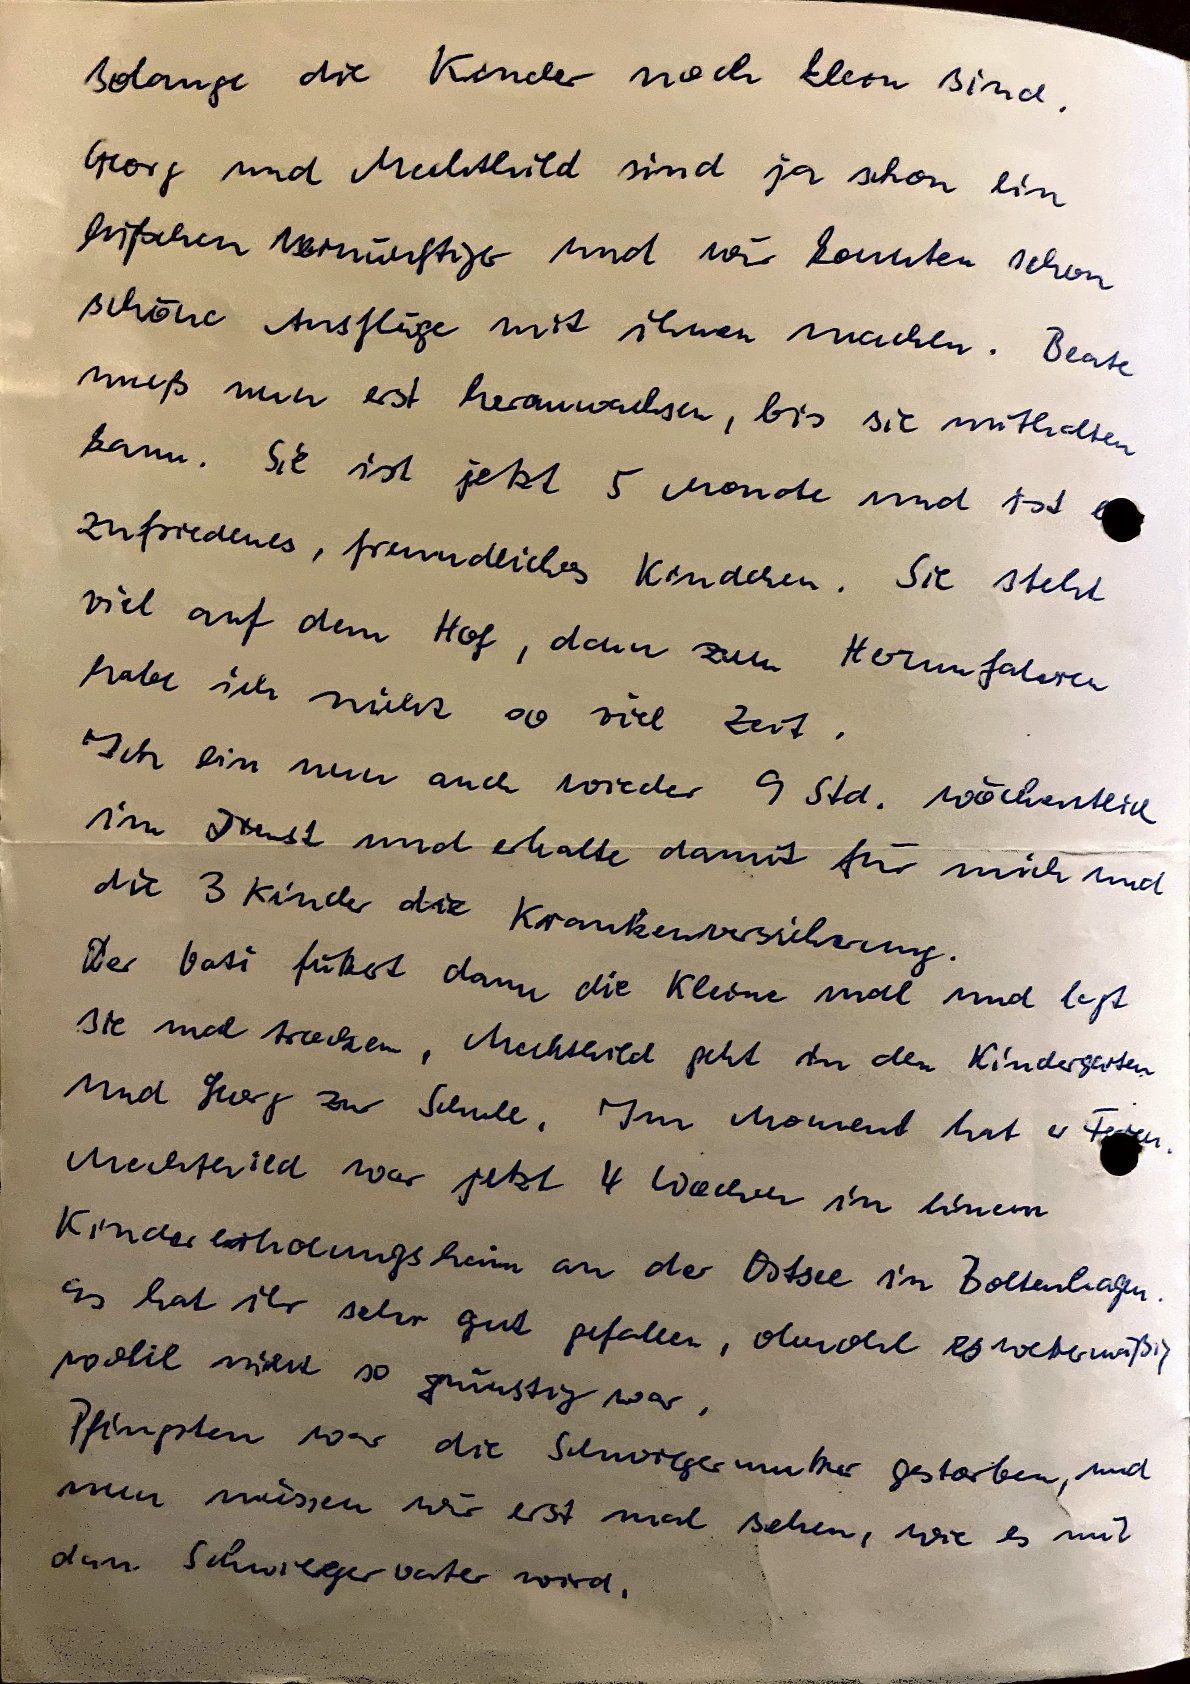 solange die Kinder noch klein sind.
Georg und Mechthild sind ja schon ein
bißchen vernünftiger und wir konnten schon
schöne Ausflüge mit ihnen machen. Beate
muß nun erst heranwachsen, bis sie mithalten
kann. Sie ist jetzt 5 Monate und ist
zufriedenes, freundliches Kindchen. Sie steht
viel auf dem Hof, denn zum Herumfahren
habe ich nicht so viel Zeit.
Ich bin nun auch wieder 9 Std. wöchentlich
im Dienst und erhalte damit für mich und
die 3 Kinder die Krankenversicherung.
Der Vati füttert dann die Kleine mal und legt
sie mal trocken, Mechthild geht in den Kindergarten
und Georg zur Schule. Im Moment hat er Ferien.
Mechthild war jetzt 4 Wochen in einem
Kindererholungsheim an der Ostsee in Boltenhagen.
Es hat ihr sehr gut gefallen, obwohl es wettermäßig
wohl nicht so günstig war.
Pfingsten war die Schwiegermutter gestorben, und
nun müssen wir erst mal sehen, wie es mit
dem Schwiegervater wird.